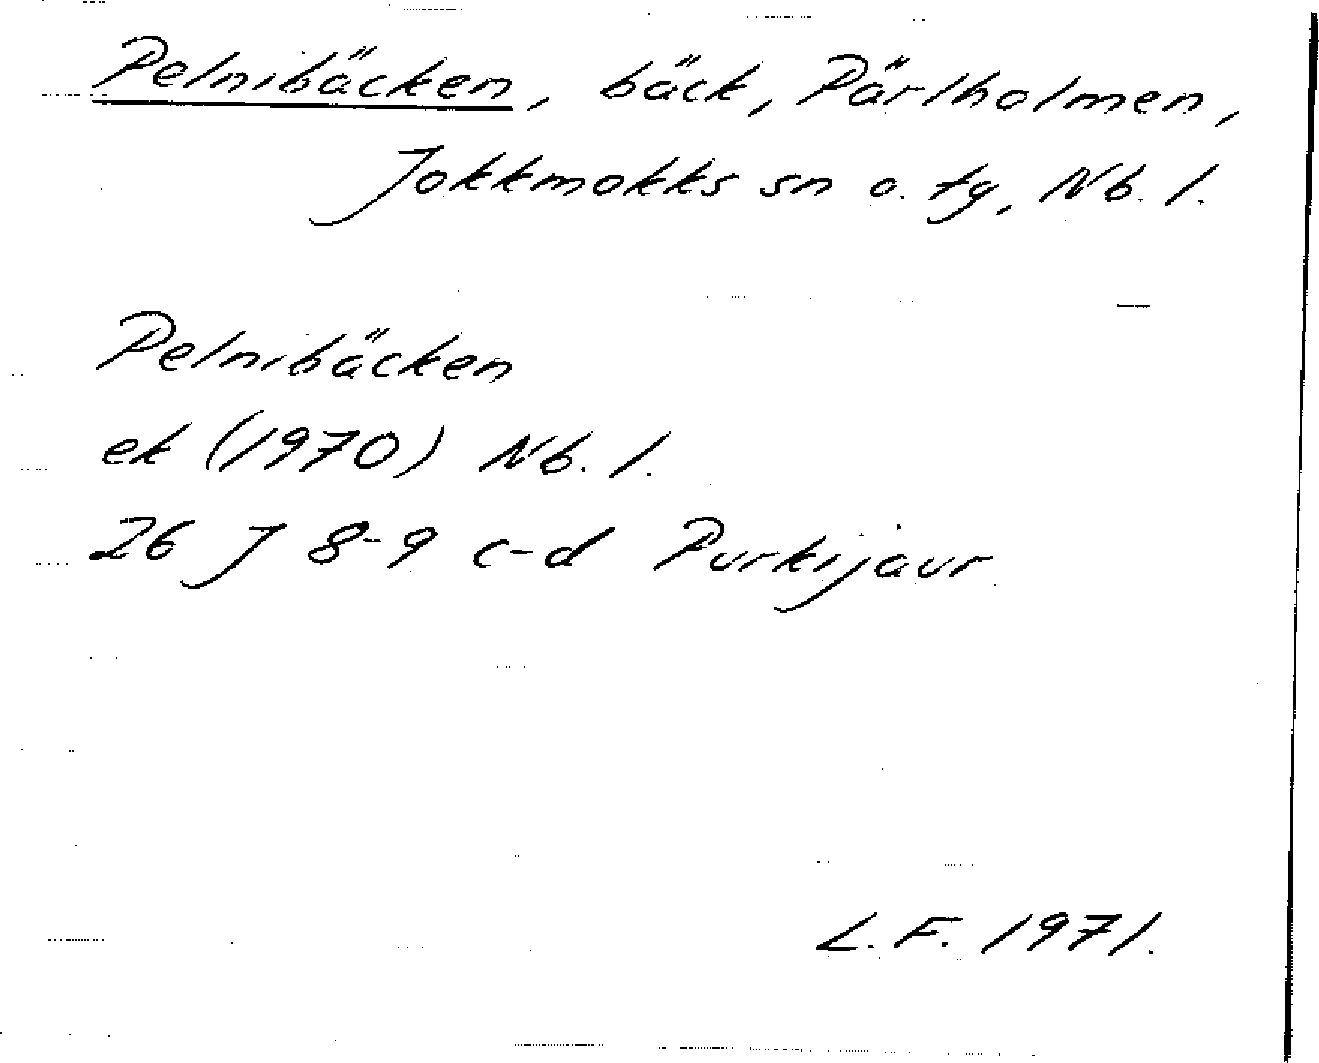 Pelnibäcken, bäck, Pärlholmen,
Jokkmokks sn o. tg, Nb. l.
Pelnibäcken
ek (1970) Nb. l.
26 J 8-9 c-d Purkijaur
L. F. 1971.